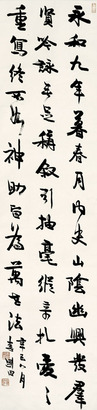 永和九年暮春月内史山陰幽興發群
賢吟詠無足稱叙引抽毫縱奇札愛之
重寫終不如神助留為萬世法